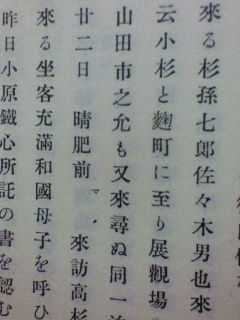 來る杉孫七郎佐々木男也來
云小杉と麹町に至り展觀場
山田市之允も又來尋ぬ同一
廿二日 晴肥前 マヽ 來訪高杉
來る坐客充滿和國母子を呼ひ
昨日小原鐵心所託の書を認む